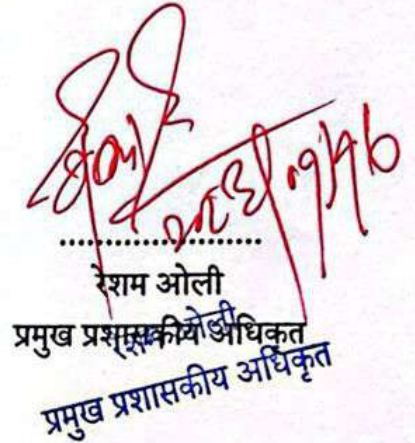 ........................
रेशम ओली
प्रमुख प्रशासकीय अधिकृत
रेशम ओली
प्रमुख प्रशासकीय अधिकृत